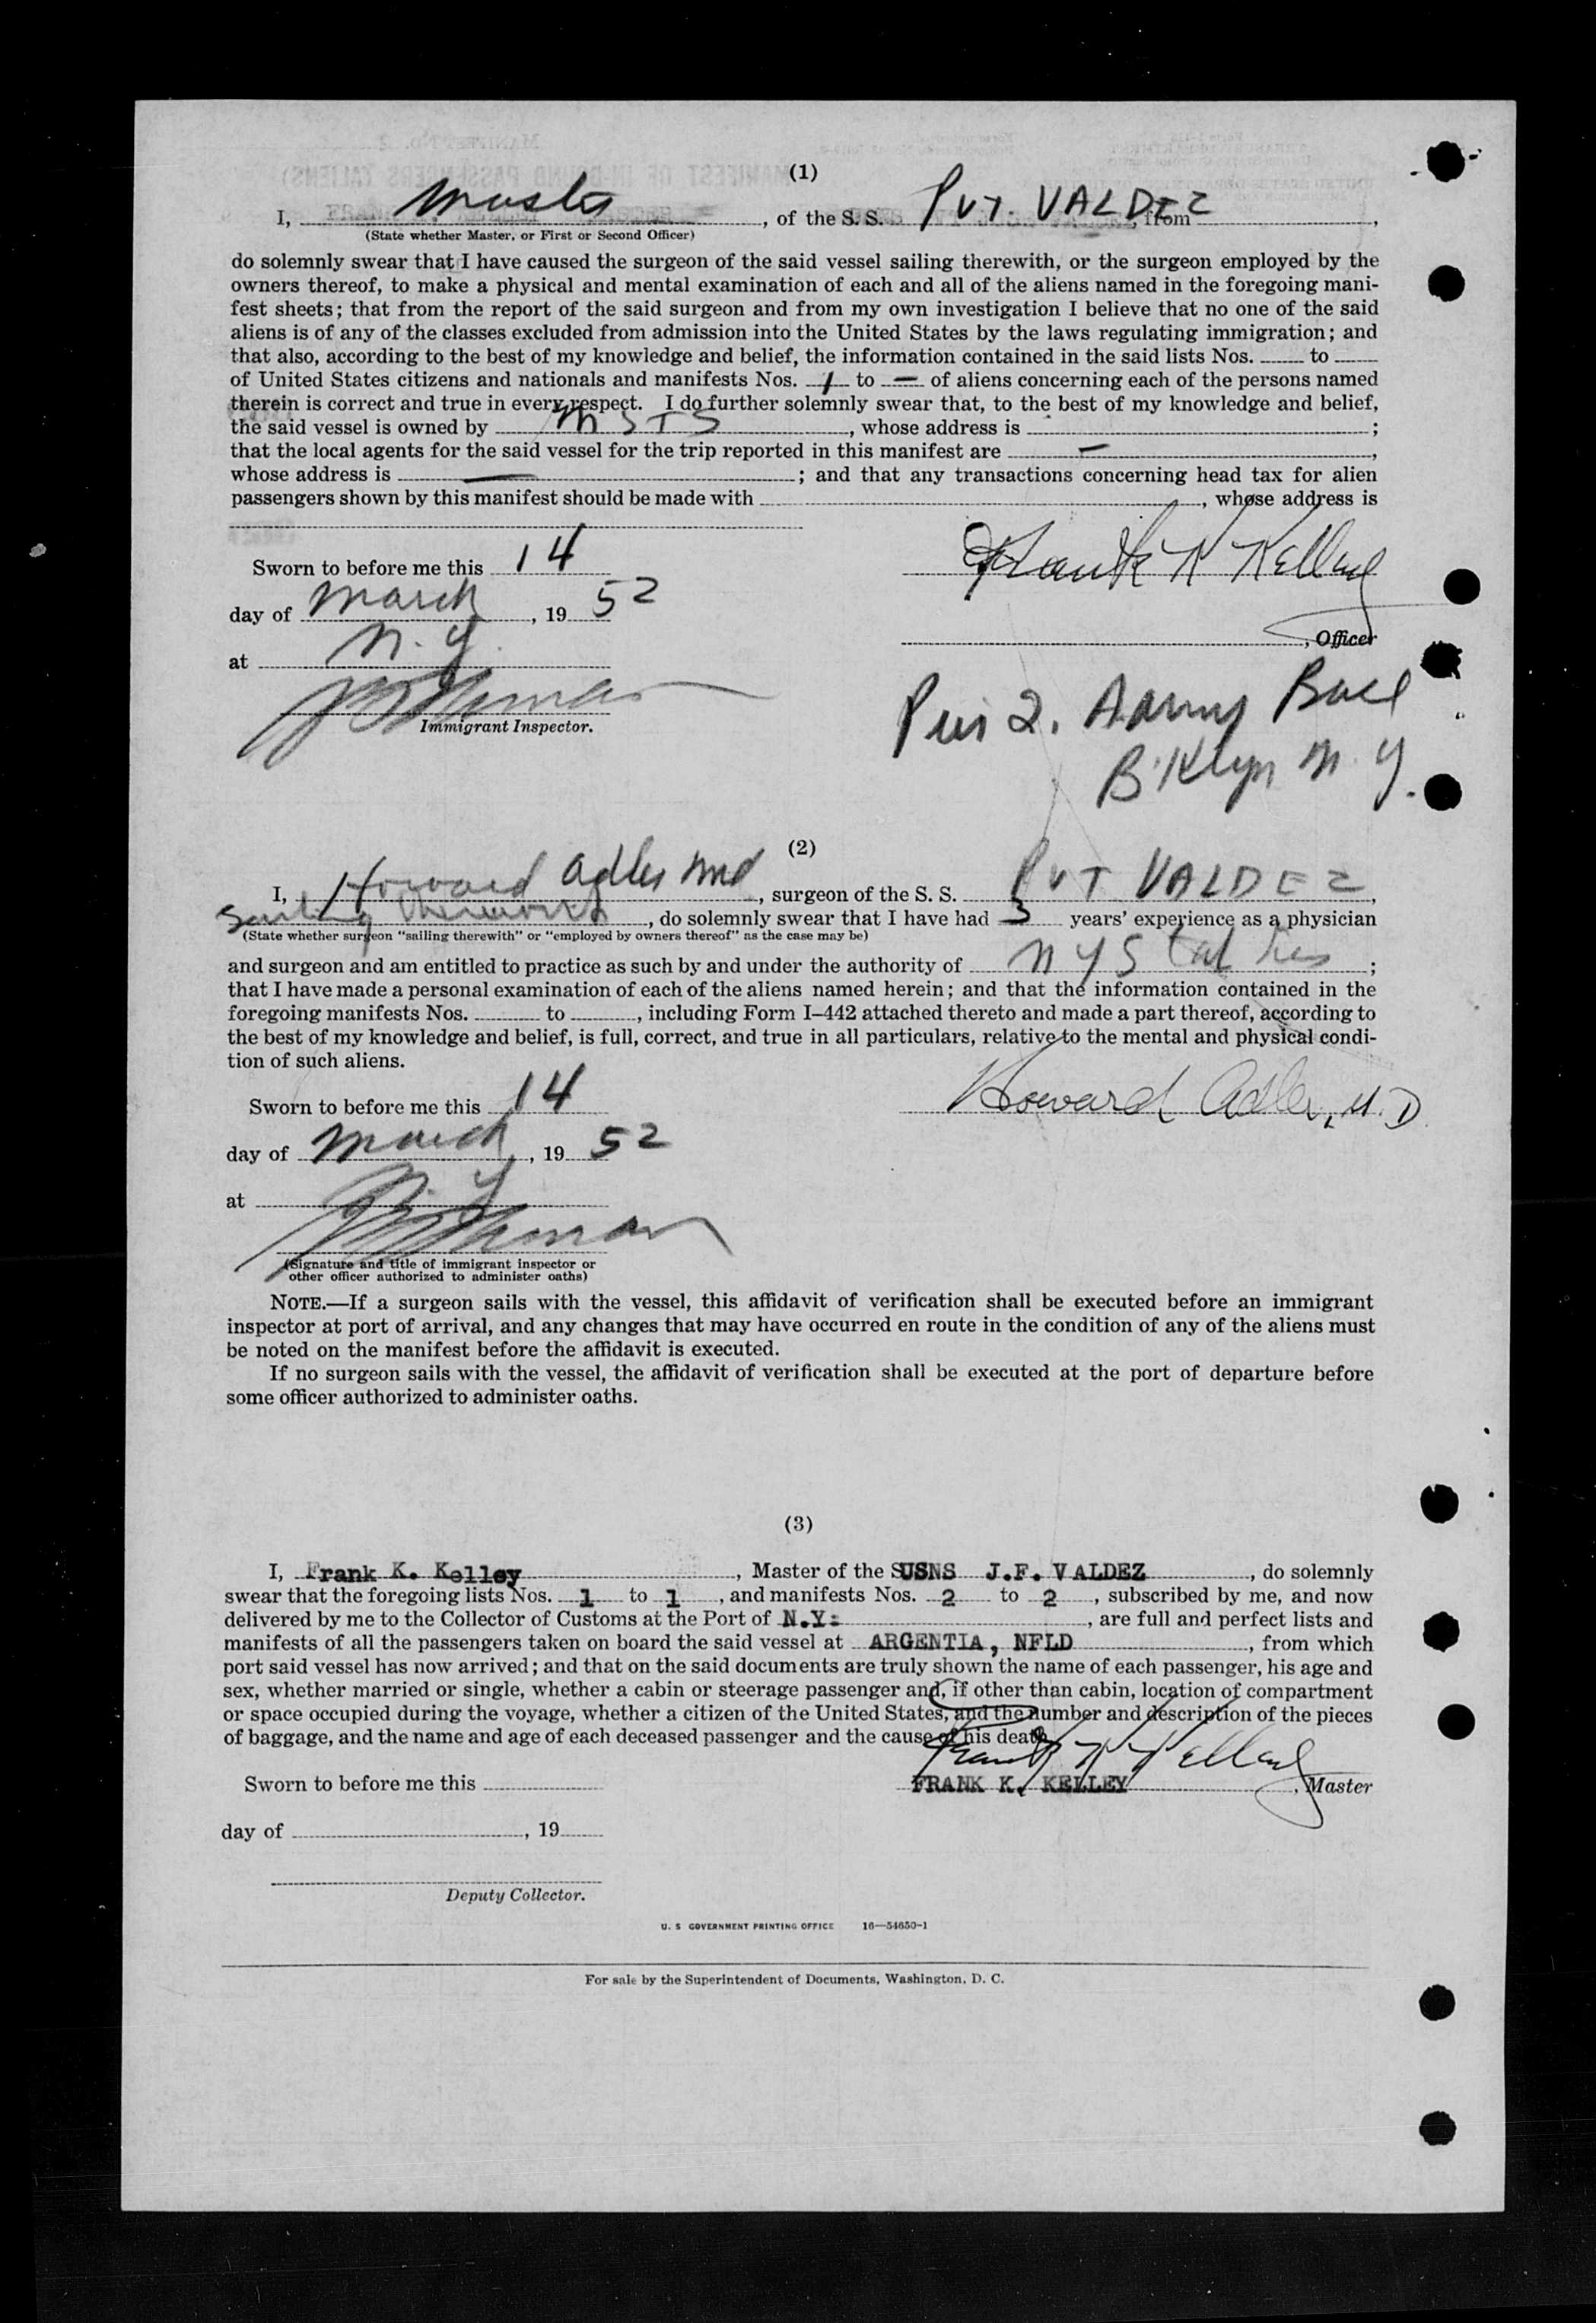 (1)
I, Master, of the S. S. Pvt. VALDEZ, from ,
(State whether Master, or First or Second Officer)
do solemnly swear that I have caused the surgeon of the said vessel sailing therewith, or the surgeon employed by the
owners thereof, to make a physical and mental examination of each and all of the aliens named in the foregoing mani-
fest sheets; that from the report of the said surgeon and from my own investigation I believe that no one of the said
aliens is of any of the classes excluded from admission into the United States by the laws regulating immigration; and
that also, according to the best of my knowledge and belief, the information contained in the said lists Nos. to
of United States citizens and nationals and manifests Nos. 1 to — of aliens concerning each of the persons named
therein is correct and true in every respect. I do further solemnly swear that, to the best of my knowledge and belief,
the said vessel is owned by MSTS, whose address is ;
that the local agents for the said vessel for the trip reported in this manifest are —,
whose address is —; and that any transactions concerning head tax for alien
passengers shown by this manifest should be made with , whose address is
Sworn to before me this 14
Frank K Kelley
day of March, 19 52
, Officer
at N. Y.
Immigrant Inspector.
Pier 2. Army Base
B'klyn N. Y.
(2)
I, Howard Adler MD, surgeon of the S. S. PVT VALDEZ,
Sailing therewith, do solemnly swear that I have had 3 years' experience as a physician
(State whether surgeon "sailing therewith" or "employed by owners thereof" as the case may be)
and surgeon and am entitled to practice as such by and under the authority of N Y State ;
that I have made a personal examination of each of the aliens named herein; and that the information contained in the
foregoing manifests Nos. to , including Form I-442 attached thereto and made a part thereof, according to
the best of my knowledge and belief, is full, correct, and true in all particulars, relative to the mental and physical condi-
tion of such aliens.
Sworn to before me this 14
Howard Adler, M. D.
day of March, 19 52
at N. Y.
(Signature and title of immigrant inspector or
other officer authorized to administer oaths)
NOTE.—If a surgeon sails with the vessel, this affidavit of verification shall be executed before an immigrant
inspector at port of arrival, and any changes that may have occurred en route in the condition of any of the aliens must
be noted on the manifest before the affidavit is executed.
If no surgeon sails with the vessel, the affidavit of verification shall be executed at the port of departure before
some officer authorized to administer oaths.
(3)
I, Frank K. Kelley, Master of the SUSNS J.F. VALDEZ, do solemnly
swear that the foregoing lists Nos. 1 to 1, and manifests Nos. 2 to 2, subscribed by me, and now
delivered by me to the Collector of Customs at the Port of N.Y:, are full and perfect lists and
manifests of all the passengers taken on board the said vessel at ARGENTIA, NFLD, from which
port said vessel has now arrived; and that on the said documents are truly shown the name of each passenger, his age and
sex, whether married or single, whether a cabin or steerage passenger and, if other than cabin, location of compartment
or space occupied during the voyage, whether a citizen of the United States, and the number and description of the pieces
of baggage, and the name and age of each deceased passenger and the cause of his death.
Frank K Kelley
Sworn to before me this
FRANK K. KELLEY, Master
day of , 19
Deputy Collector.
U. S GOVERNMENT PRINTING OFFICE 16—54650-1
For sale by the Superintendent of Documents, Washington, D. C.